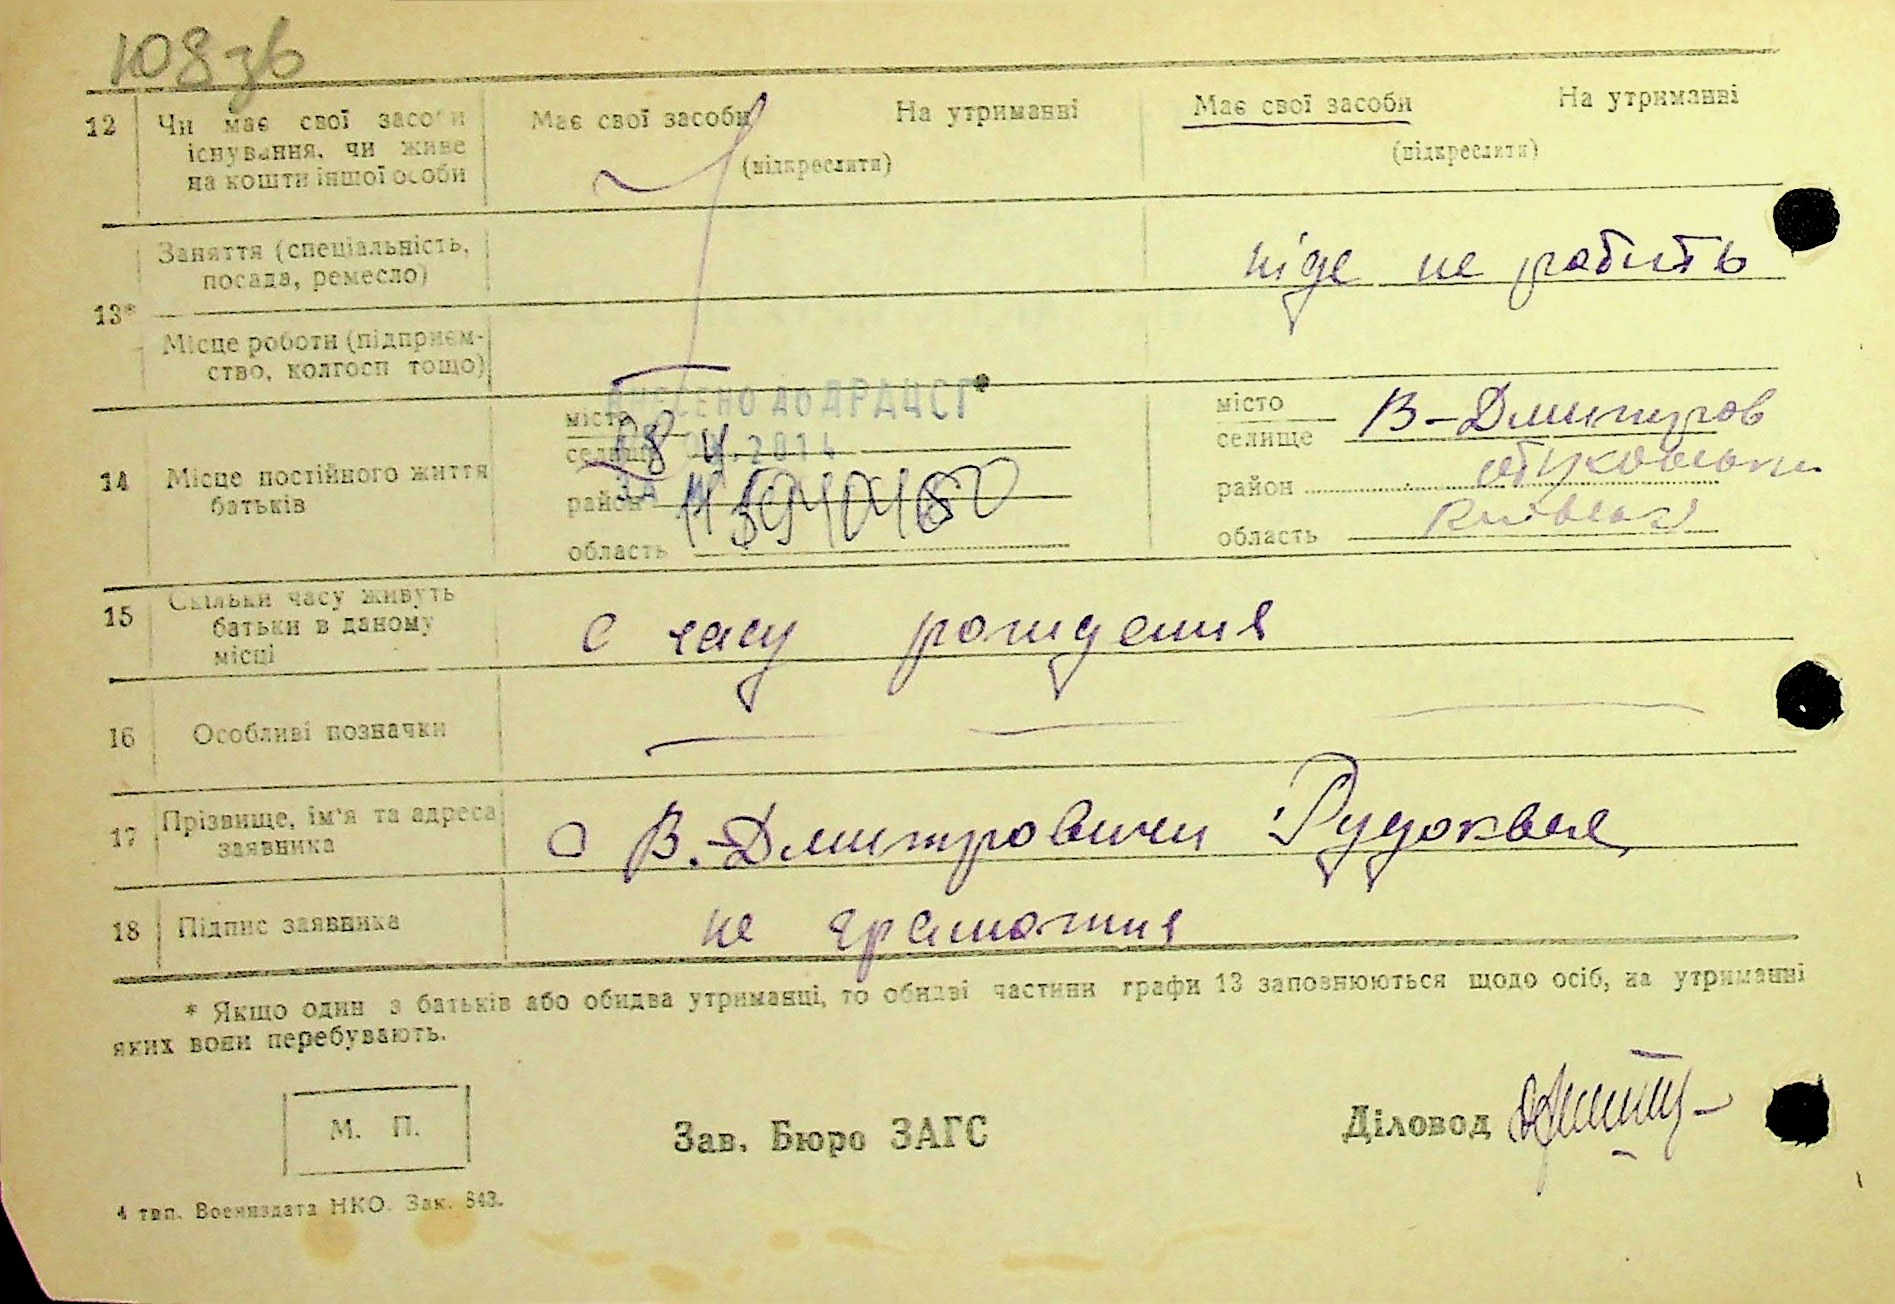 108 зв
12 Чи має свої засоби Має свої засоби На утриманні Має свої засоби На утриманні
існування, чи живе (підкреслити) (підкреслити)
на кошти іншої особи
Заняття (спеціальність,
посада, ремесло) ніде не робить
13*
Місце роботи (підприєм-
ство, колгосп тощо)
ВНЕСЕНО до ДРАЦСГ
місто місто В-Дмитров
селище 2014 селище
14 Місце постійного життя
батьків
район район
область область
15 Скільки часу живуть
батьки в даному с часу рождения
місці
16 Особливі позначки
17 Прізвище, ім'я та адреса
заявника с В.-Дмитровичи
18 Підпис заявника не грамотная
* Якщо один з батьків або обидва утриманці, то обидві частини графи 13 заповнюються щодо осіб, на утриманні
яких вони перебувають.
М. П.
Зав. Бюро ЗАГС Діловод
4 тип. Воениздата НКО. Зак. 843.